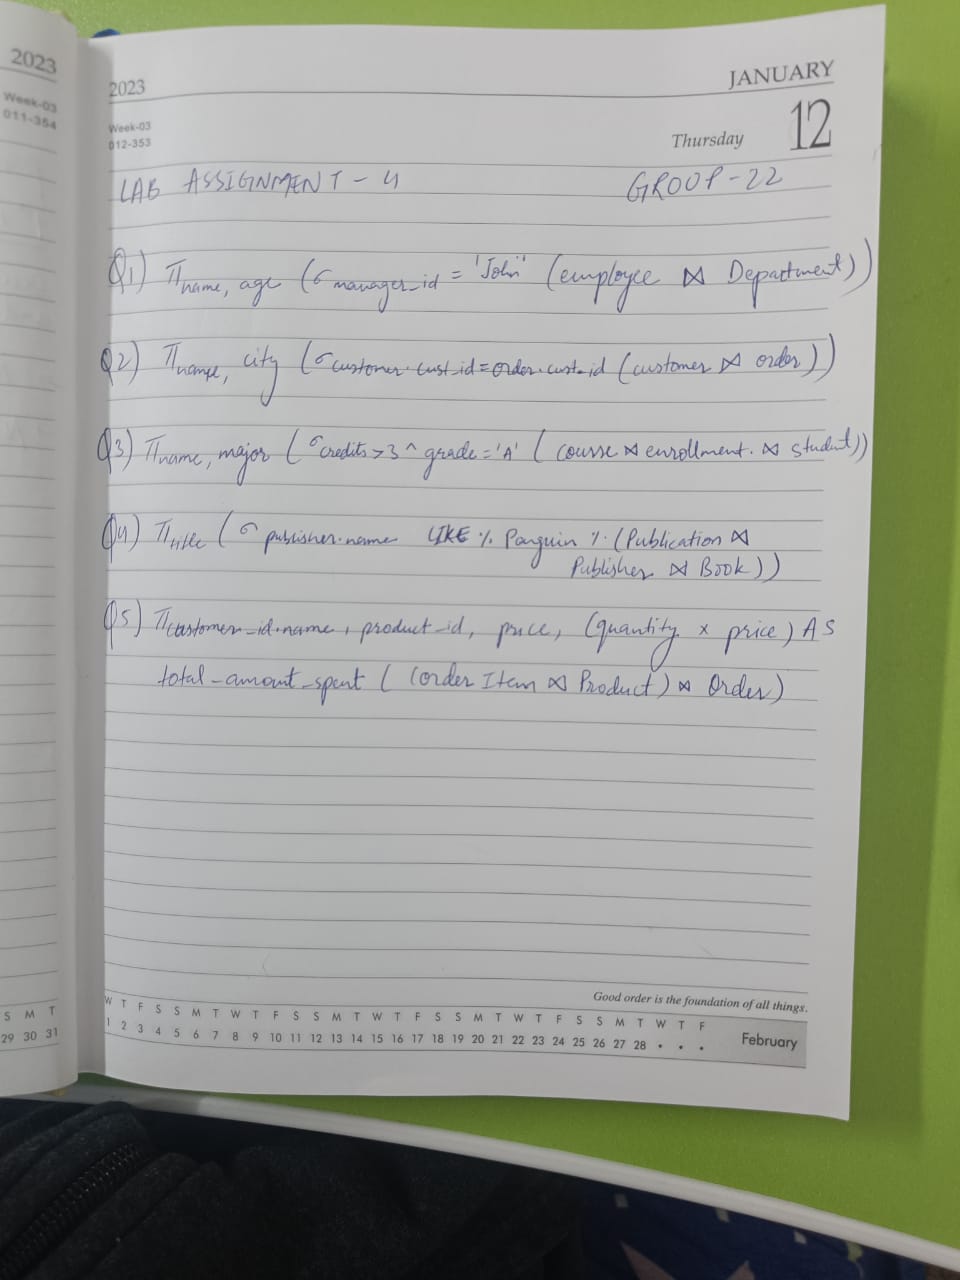 2023
Week-03
011-354
2023
JANUARY
Week-03
012-353
Thursday
12
LAB ASSIGNMENT - 4
GROUP-22
Q1) π name, age (σ manager_id = 'John' (employee ⋈ Department))
Q2) π name, city (σ customer.cust_id = order.cust_id (customer ⋈ order))
Q3) π name, major (σ credits > 3 ^ grade = 'A' (course ⋈ enrollment. ⋈ student))
Q4) π title (σ publisher.name LIKE % Penguin % (Publication ⋈
Publisher ⋈ Book))
Q5) π customer_id.name, product_id, price, (quantity × price) AS
total_amount_spent ( (order Item ⋈ Product) ⋈ Order)
Good order is the foundation of all things.
W T F S S M T W T F S S M T W T F S S M T W T F S S M T W T F
1 2 3 4 5 6 7 8 9 10 11 12 13 14 15 16 17 18 19 20 21 22 23 24 25 26 27 28 • • •
February
S M T
29 30 31